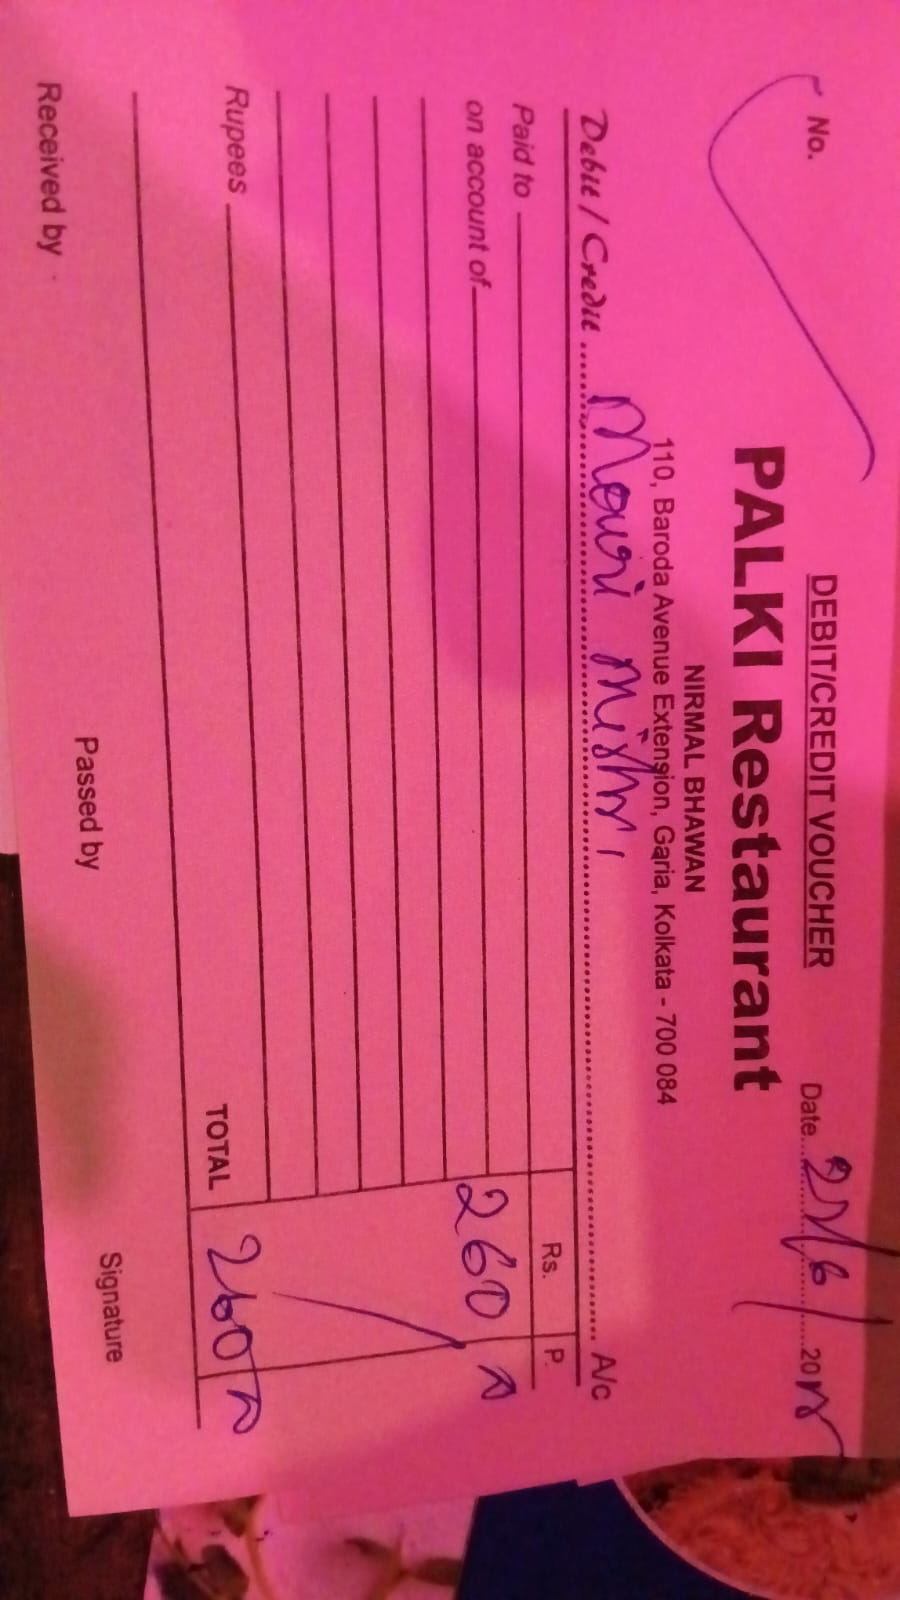 DEBIT/CREDIT VOUCHER
No. Date
PALKI Restaurant
NIRMAL BHAWAN
110, Baroda Avenue Extension, Garia, Kolkata - 700 084
Debit / Credit Mouri A/c
Rs. P.
Paid to
on account of 260
Rupees TOTAL 260
Received by Passed by Signature